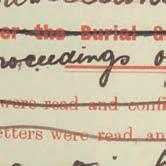 er the Burial
roceedings of
were read and con
etters were read, an